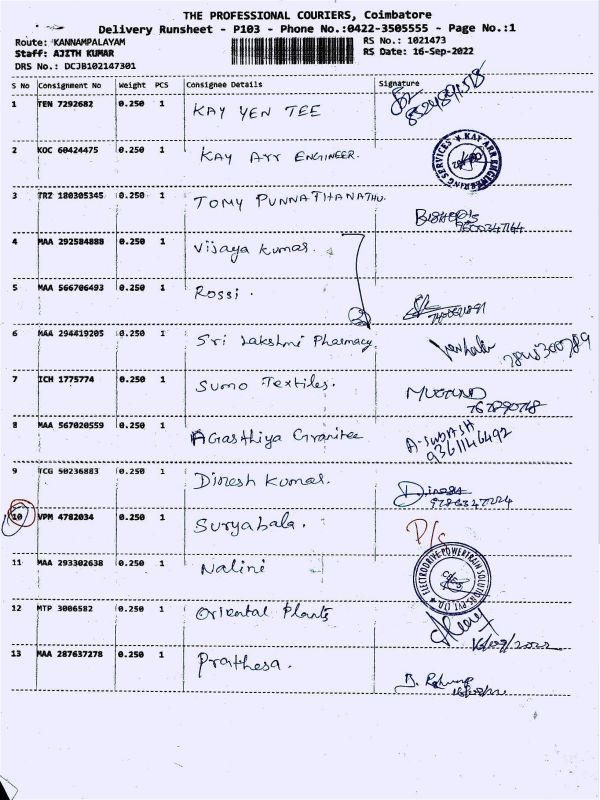 THE PROFESSIONAL COURIERS, Coimbatore
Delivery Runsheet - P103 - Phone No.:0422-3505555 - Page No.:1
Route: KANNAMPALAYAM RS No.: 1021473
Staff: AJITH KUMAR RS Date: 16-Sep-2022
DRS No.: DCJB102147301
S No Consignment No Weight PCS Consignee Details Signature
1 TEN 7292682 0.250 1 KAY YEN TEE
2 KOC 60424475 0.250 1 KAY Arr ENGINEER.
KAY ARR ENGINEERING SERVICES
3 TRZ 180305345 0.250 1 TOMY PUNNATHANATHU.
4 MAA 292584888 0.250 1 Vijaya kumar.
5 MAA 566706493 0.250 1 Rossi.
6 MAA 294419205 0.250 1 Sri Lakshmi Pharmacy
7 ICH 1775774 0.250 1 Sumo Textiles.
8 MAA 567020559 0.250 1 AGasthiya Granitee
9361146492
9 TCG 50236883 0.250 1 Dinesh Kumar. Dinesh
10 VPM 4782034 0.250 1 Suryabala. D/s
11 MAA 293302638 0.250 1 Nalini
ELECTRODRIVE POWERTRAIN SOLUTIONS PVT. LTD.
12 MTP 3006582 0.250 1 Oriental Plants
16/09/2022
13 MAA 287637278 0.250 1 Prathesa.